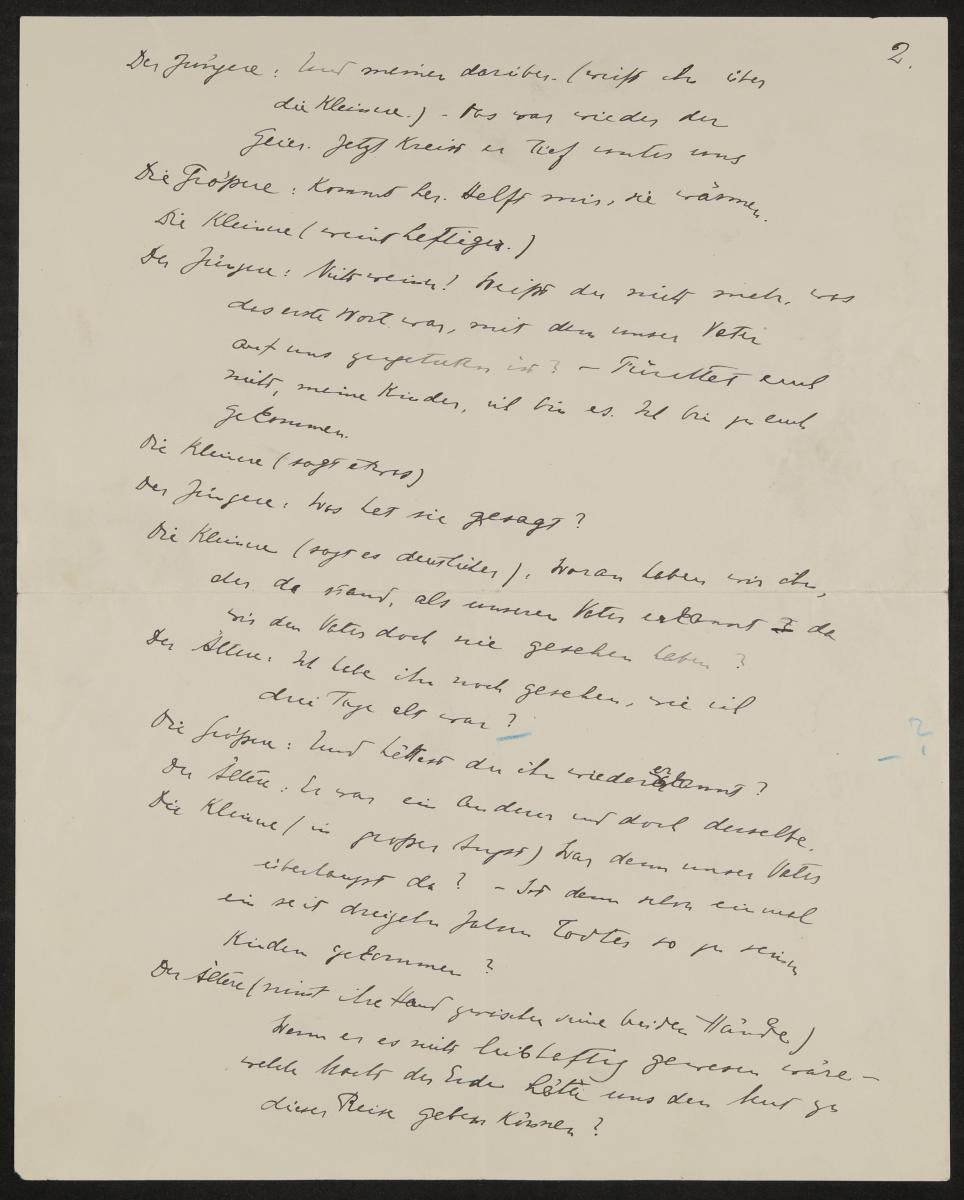 2.
Der Jüngere: Und meinen darüber. (wirft ihn über
die Kleinere.) - Das war wieder der
Geier. Jetzt kreist er tief unter uns
Die Größere: Kommt her. Helft mir, sie wärmen.
Die Kleinere (weint heftiger.)
Der Jüngere: Nicht weinen! Weißt du nicht mehr, was
das erste Wort war, mit dem unser Vater
auf uns zugetreten ist? - Fürchtet euch
nicht, meine Kinder, ich bin es. Ich bin zu euch
gekommen.
Die Kleinere (sagt etwas)
Der Jüngere: Was hat sie gesagt?
Die Kleinere (sagt es deutlicher), Woran haben wir ihn,
der da stand, als unseren Vater erkannt da
wir den Vater doch nie gesehen haben?
Der Ältere: Ich habe ihn noch gesehen, wie ich
drei Tage alt war?
Die Größere: Und hättest du ihn wiedererkannt?
– ?
Der Ältere: Er war ein Anderer und doch derselbe.
Die Kleinere (in großer Angst) War denn unser Vater
überhaupt da? - Ist denn schon einmal
ein seit dreizehn Jahren Todter so zu seinen
Kindern gekommen?
Der Ältere (nimt ihre Hand zwischen seine beiden Hände)
Wenn er es nicht leibhaftig gewesen wäre -
welche Macht der Erde hätte uns den Mut zu
dieser Reise geben können?